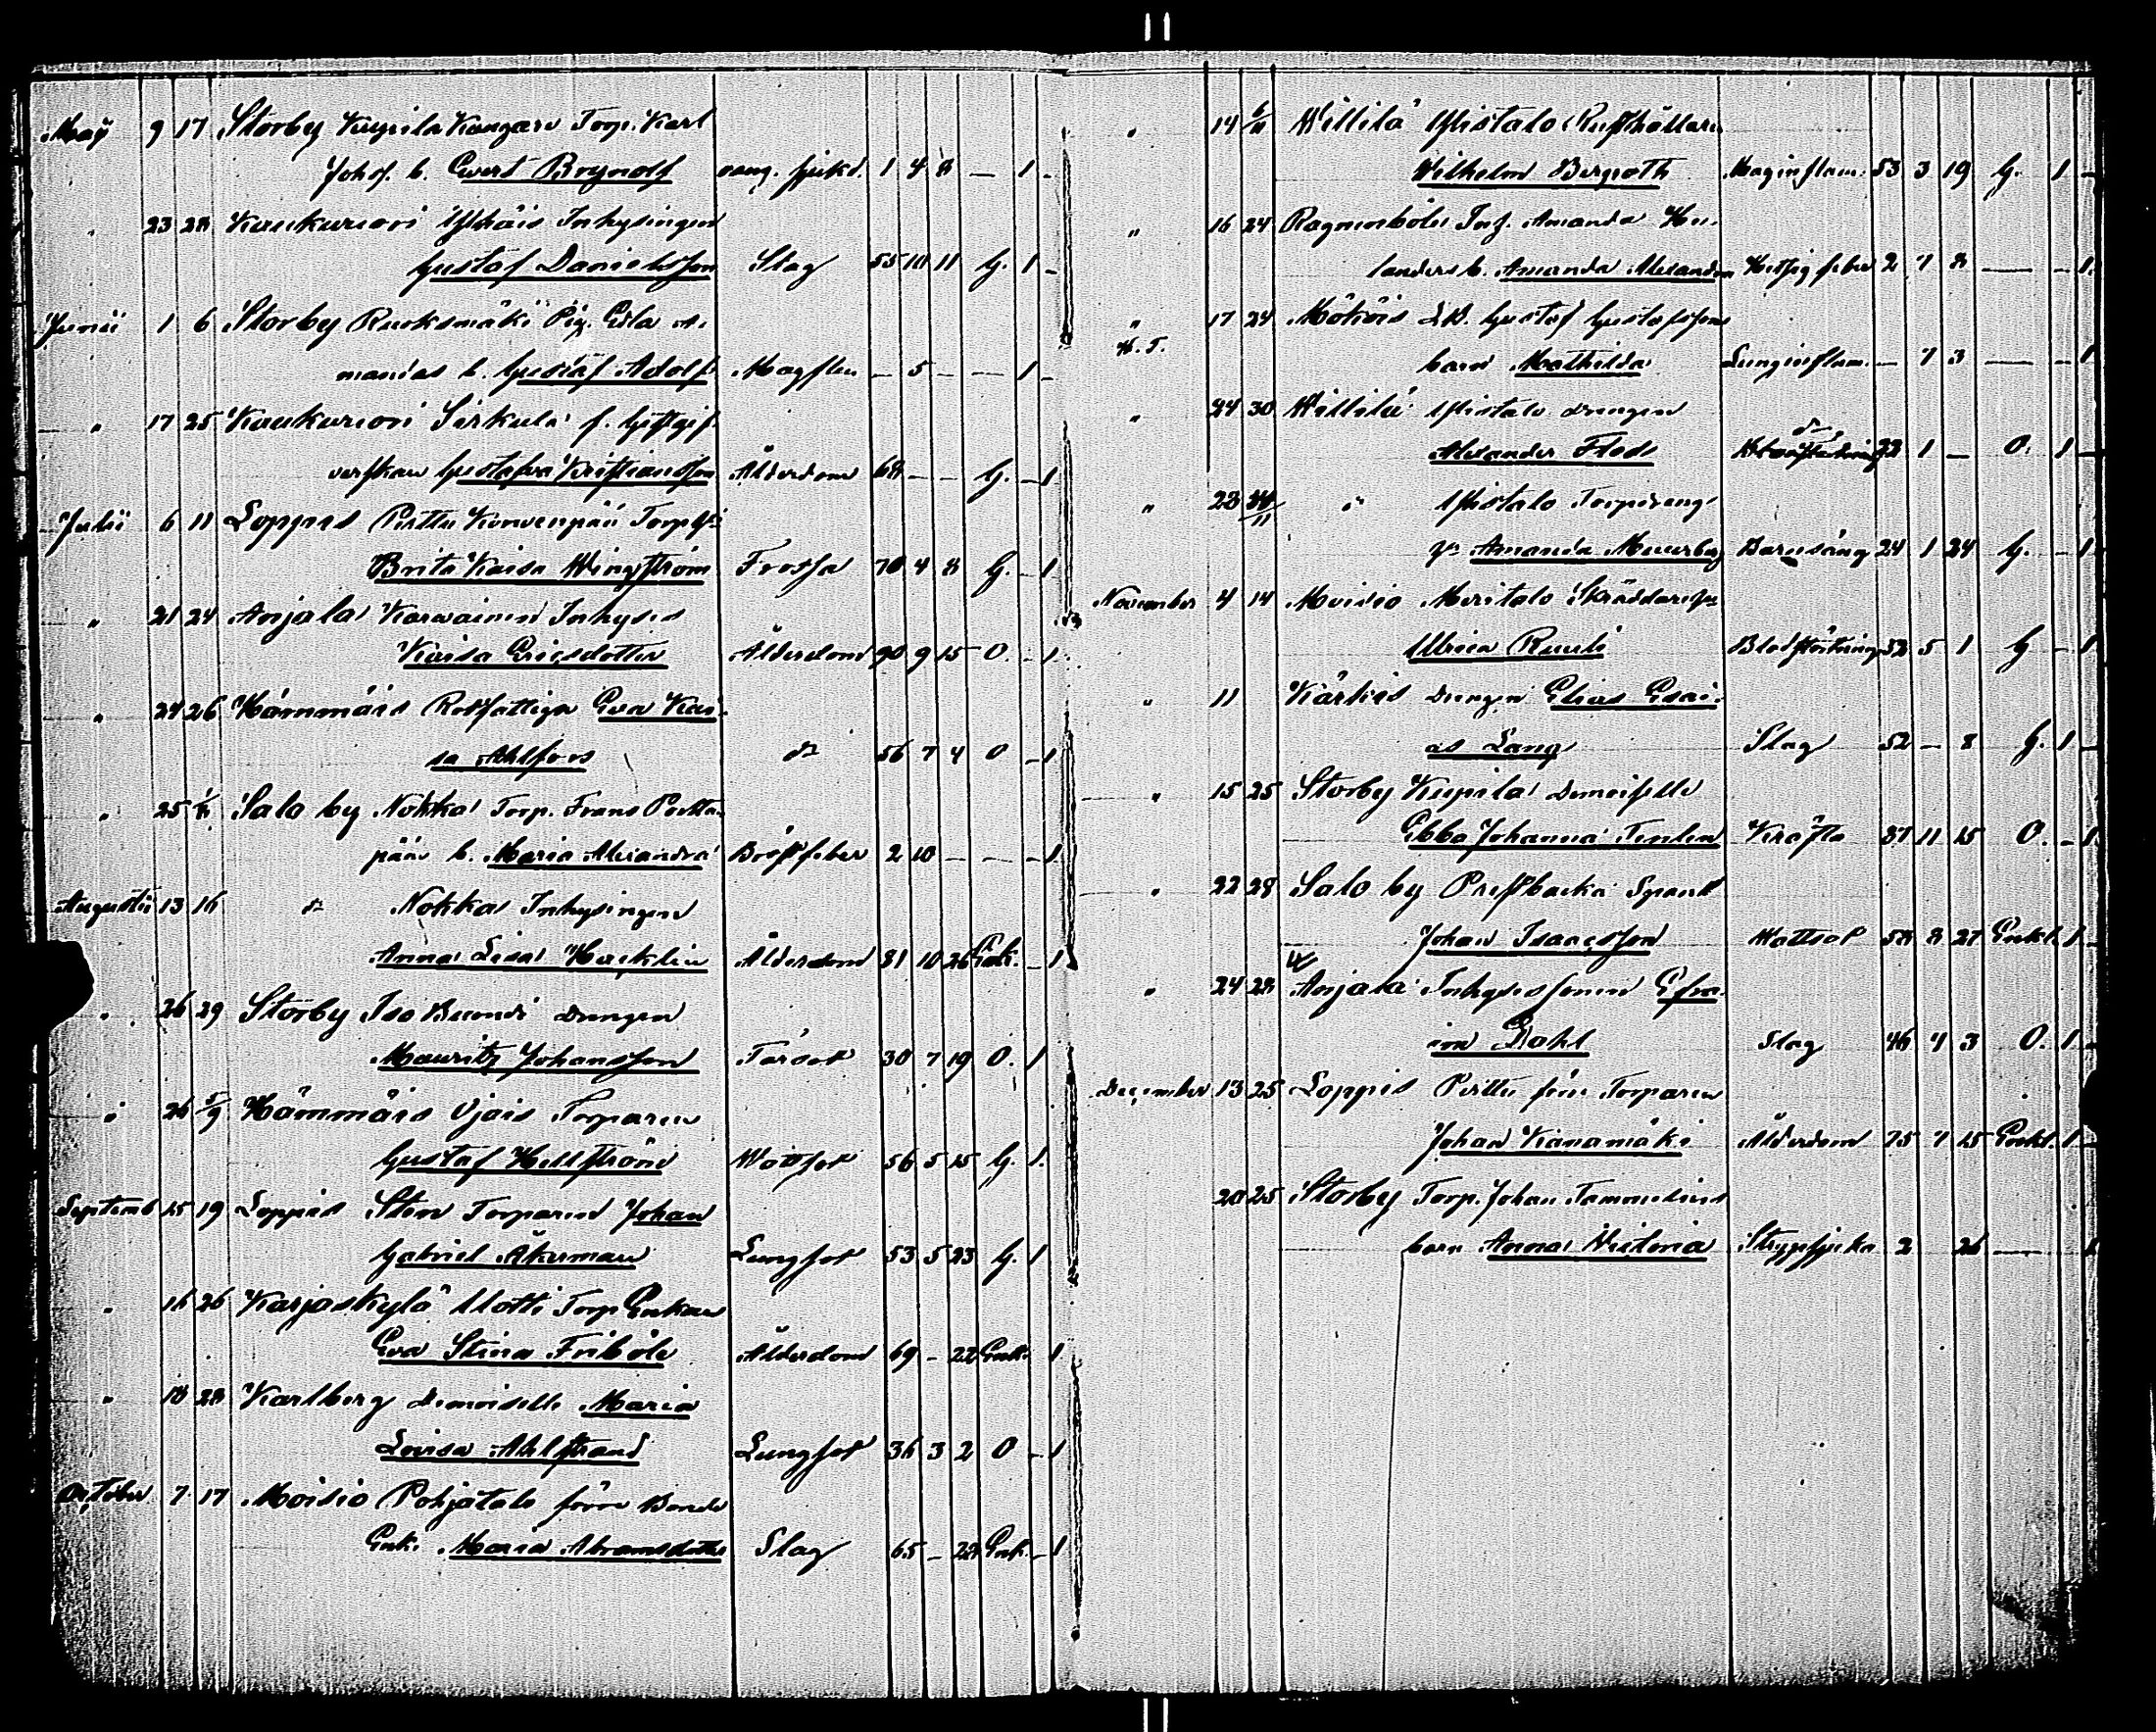 Maji 9 17 Storby Kupila Kangars Torp. Karl
Johs. b. Evert Brynolf vang. sjukd. 1 4 8 — 1 -
" 23 28 Kaukuriori Yhäis Inhysingen
Gustaf Danielsson Slag 55 10 11 G. 1 -
Junii 1 6 Storby Ruoksmäki Pig. Eda A-
mandas b. Gustaf Adolf Magflen — 5 — — 1 -
" 17 25 Kaukuriori Sirkula f. Gästgif-
verskan Gustafva Kristiansson Ålderdom 68 — — G. — 1
Julii 6 11 Loppis Perttu Torp.
Brita Kaisa Wingström Frossa 70 4 8 G. — 1
" 21 24 Anjala Karvainen Inhyses
Kaisa Ericsdotter Ålderdom 90 9 15 O. — 1
" 24 26 Hämmäis Rotfattiga Eva Kai-
sa Ahlfors do 56 7 4 O — 1
" 25 1/8 Salo by Nokka Torp. Frans Pertta-
pään b. Maria Alexandra Bröstfeber 2 10 — — — 1
Augusti 13 16 do Nokka Inhysingen
Anna Lisa Hacklin Ålderdom 81 10 26 Enk. — 1
" 26 29 Storby Iso Drengen
Mauritz Johansson Tärsot 30 7 19 O. 1
" 26 5/9 Hämmäis Ojais Torparen
Gustaf Hellström Wattsot 56 5 15 G. 1.
Septemb 15 19 Loppis Sten Torparen Johan
Gabriel Åkerman Lungsot 53 5 23 G. 1
" 16 26 Karjaskylä Uotti Torp Enkan
Eva Stina Friböle Ålderdom 69 — 22 Enk. 1
" 18 28 Karlberg Demoiselle Maria
Lovisa Ahlstrand Lungsot 36 3 2 O — 1
October 7 17 Moisio Pohjatalo förre Bonde
Enk. Maria Abramsdotter Slag 65 — 22 Enk. — 1
" 14 6/11 Willilä Ylistalo Rusthållaren
Wilhelm Bergroth Maginflam. 53 3 19 G. 1 —
" 16 24 Ragnersböle Inh. Amanda He-
landers b. Amanda Alexandra Hetsig feber 2 7 8 — — 1.
" 17 24 Mököis Gustaf Gustafssons
H. T.
barn Mathilda Lunginflam. — 7 3 — — 1
" 24 30 Willilä Ylistalo drengen
Alexander Flods 22 1 — O. 1 —
" 23 11 " Ylistalo Torpdreng
Amanda Murberg Barnsäng 24 1 24 G. — 1
November 4 14 Moisio Meritalo Skräddare
Ulrica Ruuli Blodstörtning 52 5 1 G — 1
" 11 Kärkis drengen Elias Esai-
as Lang Slag 52 — 8 G. 1 —
" 15 25 Storby Kupila Demoiselle
Ebba Johanna Tenlen Kräfta 87 11 15 O. — 1
" 22 28 Salo by Prestbacka
Johan Isaacsson Wattsot 58 8 27 Enkl. 1 —
" 24 28 Anjala Inhysessonen Efra-
im Dahl Slag 46 7 3 O. 1 —
December 13 25 Loppis Perttu förre Torparen
Johan Kanamäki Ålderdom 75 7 15 Enkl. 1 —
20 25 Storby Torp. Johan
barn Anna Victoria Strypsjuka 2 26 — 1